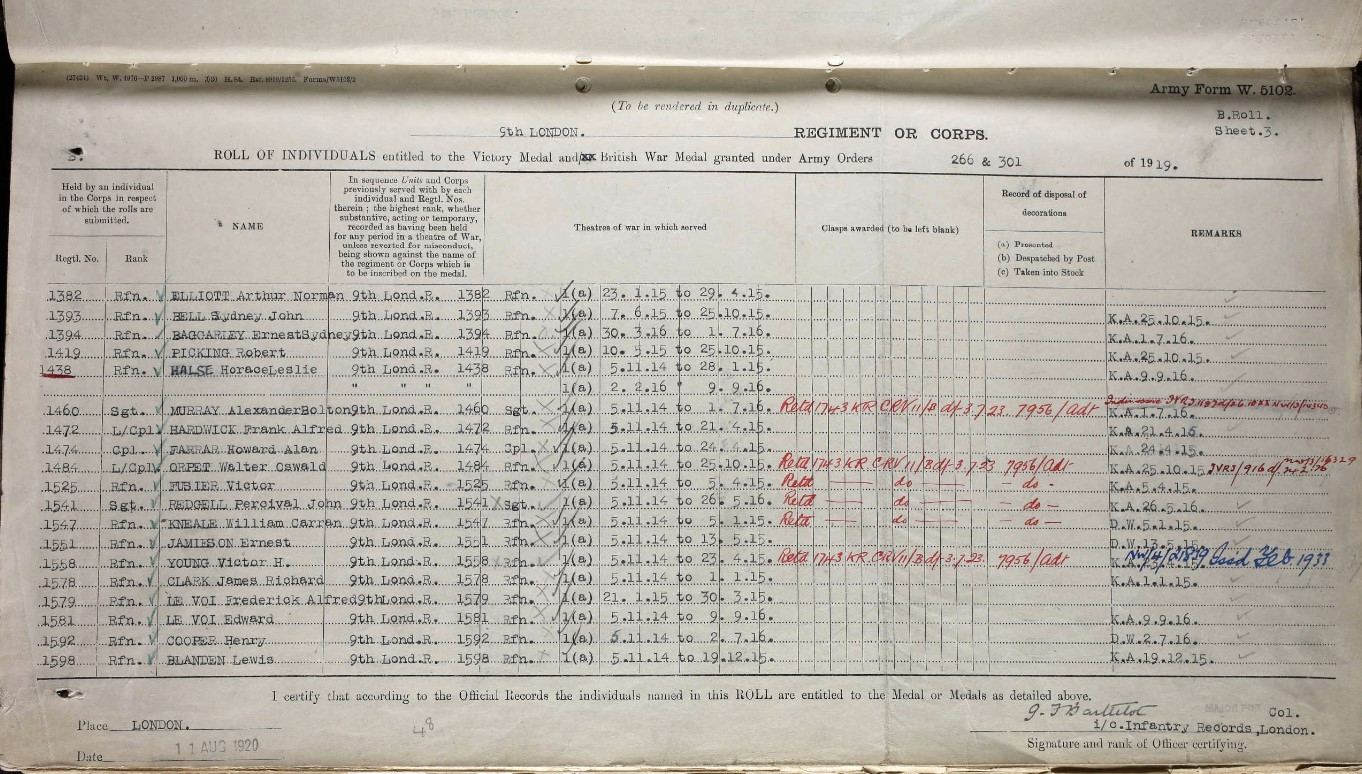 (27434) Wt. W. 4976—P 2987 1,000 m. 7/30 H. St. Forms/W5102/2
Army Form W. 5102.
(To be rendered in duplicate.)
B.Roll.
Sheet.3.
9th LONDON. REGIMENT OR CORPS.
ROLL OF INDIVIDUALS entitled to the Victory Medal and/ British War Medal granted under Army Orders 266 & 301 of 1919.
Held by an individual in the Corps in respect of which the rolls are submitted.
Regtl. No. Rank
NAME
In sequence Units and Corps previously served with by each individual and Regtl. Nos. therein; the highest rank, whether substantive, acting or temporary, recorded as having been held for any period in a theatre of War, unless reverted for misconduct, being shown against the name of the regiment or Corps which is to be inscribed on the medal.
Theatres of war in which served
Clasps awarded (to be left blank)
Record of disposal of decorations
(a) Presented
(b) Despatched by Post
(c) Taken into Stock
REMARKS
1382 Rfn. ELLIOTT Arthur Norman 9th Lond.R. 1382 Rfn. 1(a) 23. 1.15 to 29. 4.15.
1393 Rfn. BELL Sydney John 9th Lond.R. 1393 Rfn. 1(a) 7. 6.15 to 25.10.15. K.A.25.10.15.
1394 Rfn. BAGGARLEY ErnestSydney 9th Lond.R. 1394 Rfn. 1(a) 30. 3.16 to 1. 7.16. K.A.1.7.16.
1419 Rfn. PICKING Robert 9th Lond.R. 1419 Rfn. 1(a) 10. 3.15 to 25.10.15. K.A.25.10.15.
1438 Rfn. HALSE HoraceLeslie 9th Lond.R. 1438 Rfn. 1(a) 5.11.14 to 28. 1.15. K.A.9.9.16.
" " " " 1(a) 2. 2.16 " 9. 9.16.
1460 Sgt. MURRAY AlexanderBolton 9th Lond.R. 1460 Sgt. 1(a) 5.11.14 to 1. 7.16. Retd 1743 KR CRV 11/B df 3.7.23. 7956/Adt K.A.1.7.16.
1472 L/Cpl HARDWICK Frank Alfred 9th Lond.R. 1472 Rfn. 1(a) 5.11.14 to 21. 4.15. K.A.21.4.15.
1474 Cpl. FARRAR Howard Alan 9th Lond.R. 1474 Cpl. 1(a) 5.11.14 to 24. 4.15. K.A.24.4.15.
1484 L/Cpl ORPET Walter Oswald 9th Lond.R. 1484 Rfn. 1(a) 5.11.14 to 25.10.15. Retd 1743 KR CRV 11/B df 3.7.23 7956/Adt K.A.25.10.15.
1525 Rfn. FUSIER Victor 9th Lond.R. 1525 Rfn. 1(a) 5.11.14 to 5. 4.15. Retd — do — — do - K.A.5.4.15.
1541 Sgt. REDGELL Percival John 9th Lond.R. 1541 Sgt. 1(a) 5.11.14 to 26. 5.16. Retd — do — — do — K.A.26.5.16.
1547 Rfn. KNEALE William Carran 9th Lond.R. 1547 Rfn. 1(a) 5.11.14 to 5. 1.15. Retd — do — — do — D.W.5.1.15.
1551 Rfn. JAMIESON Ernest 9th Lond.R. 1551 Rfn. 1(a) 5.11.14 to 13. 5.15. D.W.13.5.15.
1558 Rfn. YOUNG Victor H. 9th Lond.R. 1558 Rfn. 1(a) 5.11.14 to 23. 4.15. Retd 1743 KR CRV 11/B df 3.7.23. 7956/Adt Issd Feb 1933
1578 Rfn. CLARK James Richard 9th Lond.R. 1578 Rfn. 1(a) 5.11.14 to 1. 1.15. K.A.1.1.15.
1579 Rfn. LE VOI Frederick Alfred 9thLond.R. 1579 Rfn. 1(a) 21. 1.15 to 30. 3.15.
1581 Rfn. LE VOI Edward 9th Lond.R. 1581 Rfn. 1(a) 5.11.14 to 9. 9.16. K.A.9.9.16.
1592 Rfn. COOPER Henry 9th Lond.R. 1592 Rfn. 1(a) 5.11.14 to 2. 7.16. D.W.2.7.16.
1598 Rfn. BLANDEN Lewis 9th Lond.R. 1598 Rfn. 1(a) 5.11.14 to 19.12.15. K.A.19.12.15.
I certify that according to the Official Records the individuals named in this ROLL are entitled to the Medal or Medals as detailed above.
Place LONDON.
48
MAJOR FOR Col.
i/c.Infantry Records,London.
Date 11 AUG 1920
Signature and rank of Officer certifying.